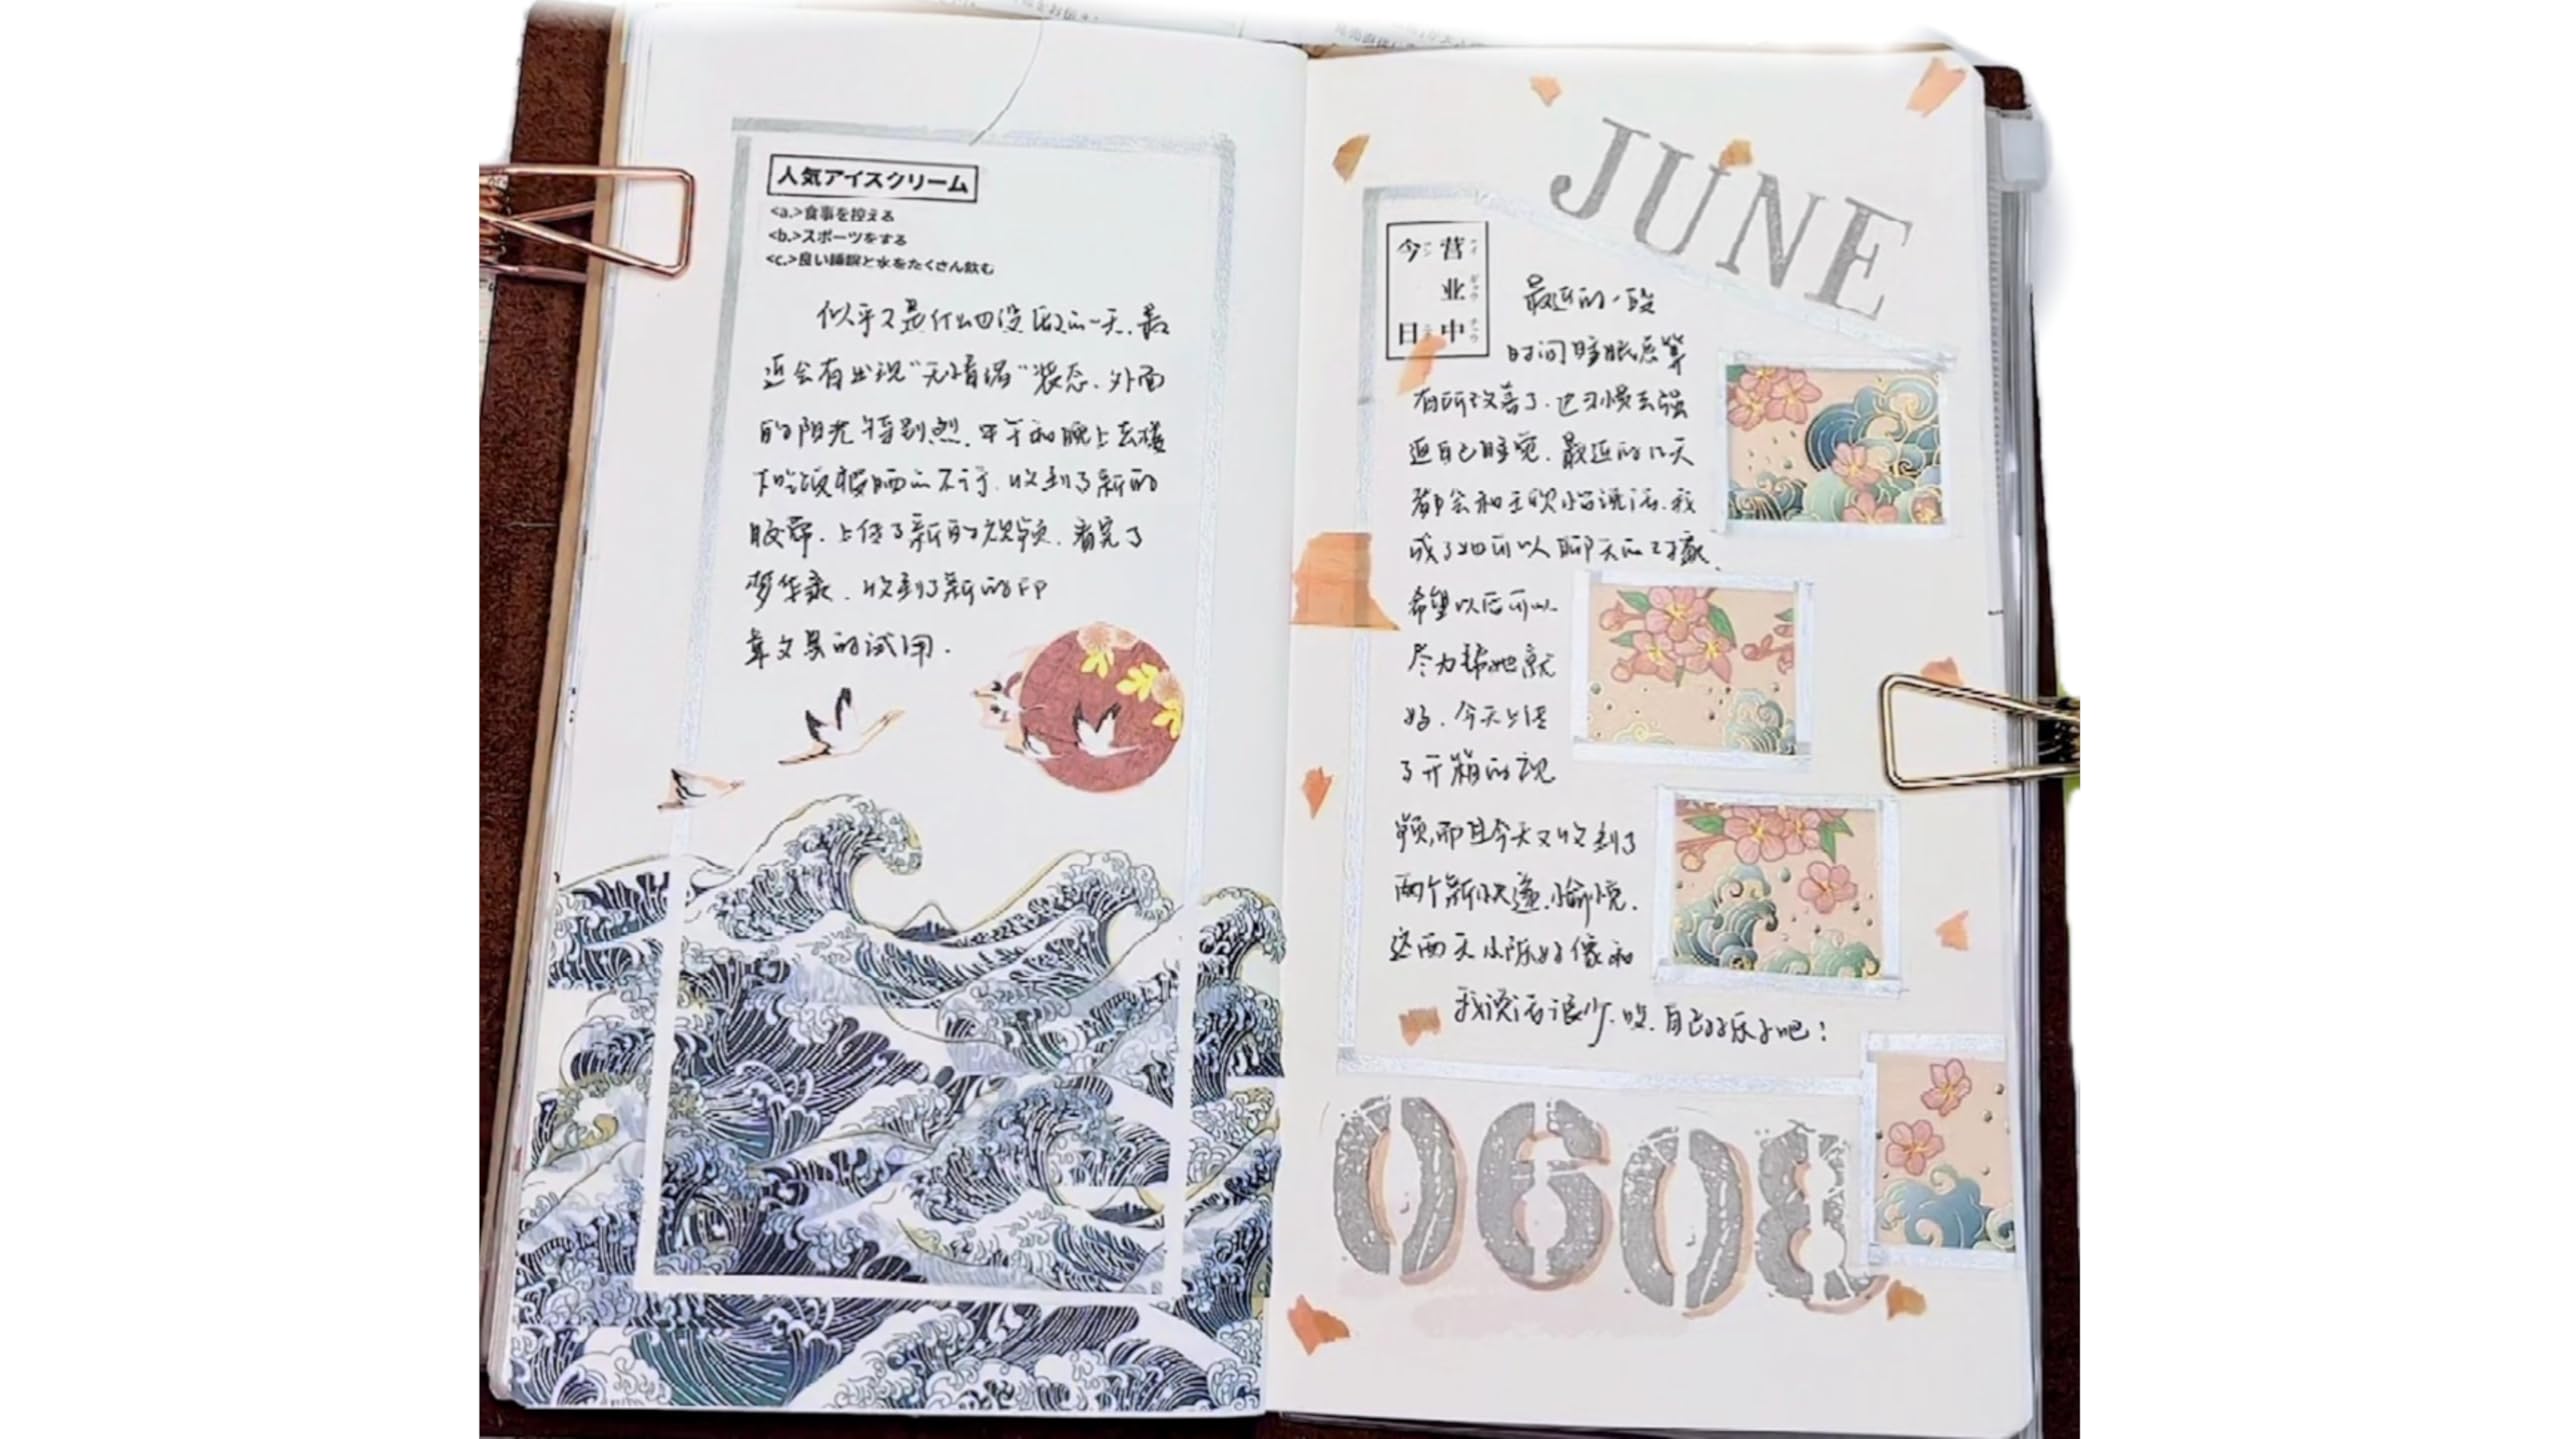 人気アイスクリーム
<a.>食事を控える
<b.>スポーツをする
<c.>良い睡眠と水をたくさん飲む
似乎又是什么也没做的一天.最
近会有出现"无情绪"状态.外面
的阳光特别烈.中午和晚上去楼
下吃饭被晒的不行.收到了新的
胶带.上传了新的视频.看完了
梦华录.收到了新的印
章文具的试用.
JUNE
今日
营业中
最近的一段
时间睡眠总算
有所改善了.也习惯去强
迫自己睡觉.最近的几天
都会和主耿小姐说话.我
成了她可以聊天的对象.
希望以后可以
尽力帮她就
好.今天上传
了开箱的视
频,而且今天又收到了
两个新快递.愉悦.
这两天小陈好像和
我说话很少.哎.自己好乐子吧!
0608